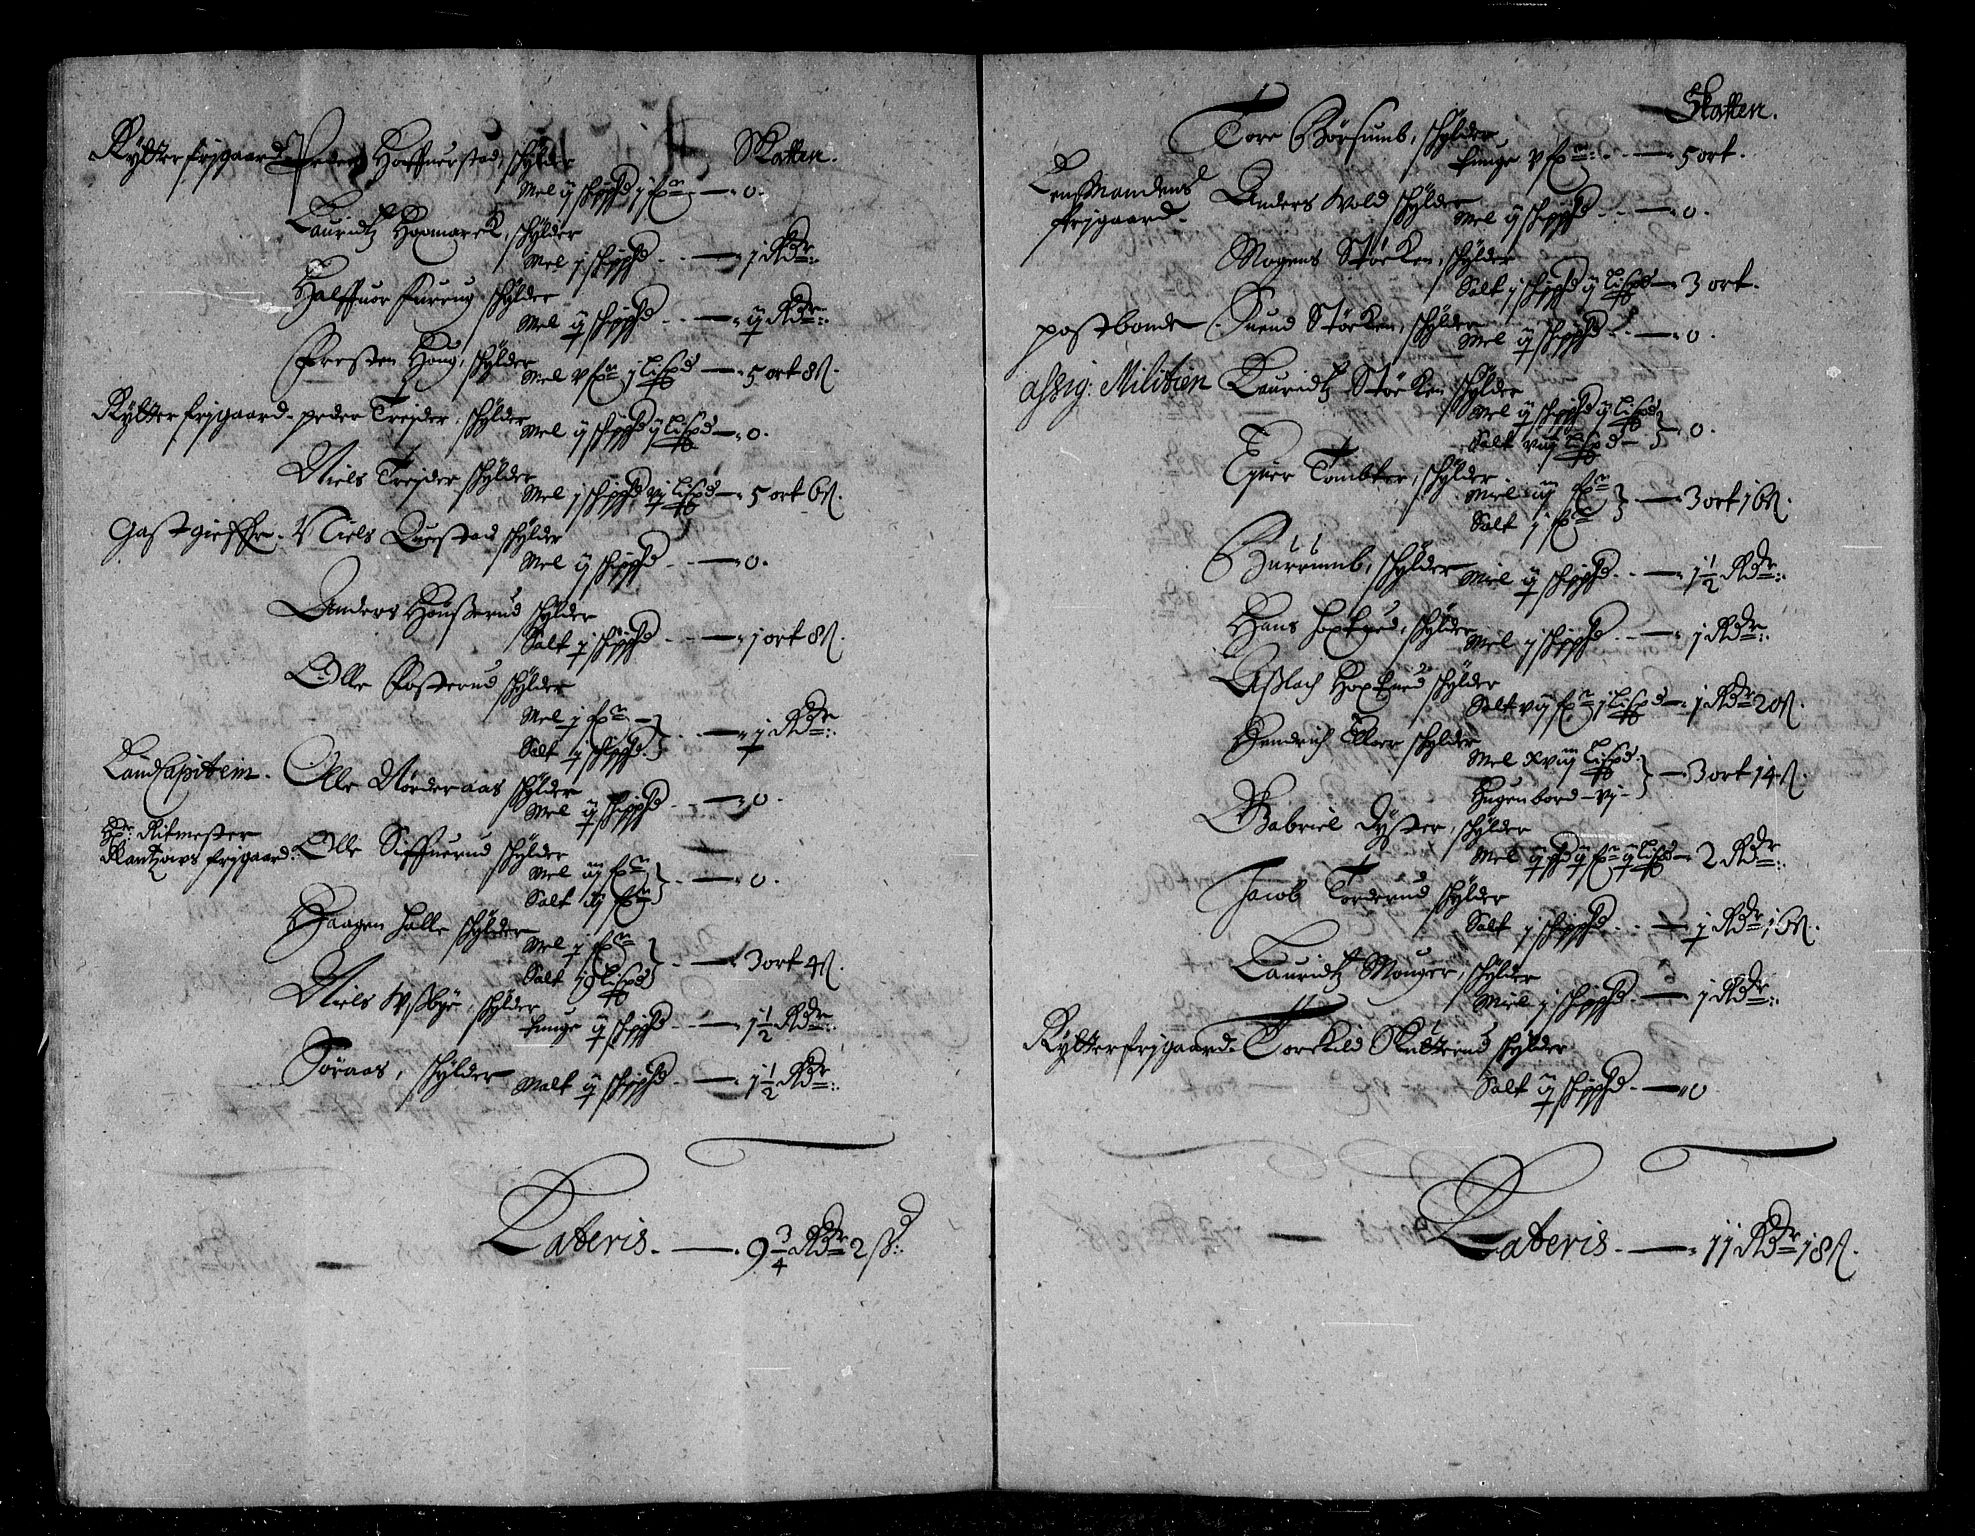 Skatten.
Rytter frijgaard Peder Haffnerstad, schylder
Mel ij schippd j fr: — 0.
Lauridtz Hogmarck, schylder
Mel j schippd — j Rdr:
Halffuor Fureug schylder
Mel ij schippd — ij Rdr:
Presten Houg, schylder
Mel v fr j Lispd — 5 ort 8 s.
Rytter frijgaard. peder Trejder, schylder
Mel ij schippd ij Lispd — 0.
Niels Trejder schylder
Mel j schippd vij Lispd — 5 ort 6 s.
Gastgieffr. Niels Questad schylder
Mel ij schippd — 0.
Anders Housserud schylder
Salt j schippd — j ort 8 s.
Olle Posterud schylder
Mel j fr
Salt j schippd. — j Rdr:
Landcapitein. Olle Nórderaas schylder
Mel ij schippd — 0.
Hr: Ritmester
Rantzows frijgaard. Olle Siffuerud schylder
Mel iij fr
Salt iij fr — 0.
Haagen Halle schylder
Mel j fr
Salt ij Lispd — 3 ort 4 s.
Niels Wssbye, schylder
Tunge ij schippd — j 1/2 Rdr:
Sóraas, schylder
Malt ij schippd — j 1/2 Rdr:
Lateris. — 9 3/4 Rdr 2 s:
Skatten.
Tore Bórsumb, schylder
Tunge v fr: — 5 ort.
Lensmandens
frijgaard. Anders Wold schylder
Mel ij schippd — 0.
Mogens Stócken, schylder
Salt j schippd ij Lispd — 3 ort.
postbonde. Suend Stócken, schylder
Mel ij schippd — 0.
assig: Militien Lauridtz Stócken schylder
Mel ij schippd ij Lispd
Salt viij Lispd — 0.
Efuer Tombter, schylder
Miel iij fr
Salt j fr — 3 ort 16 s.
Burumb, schylder
Miel ij schippd — 1 1/2 Rdr:
Hans Hopkued, schylder
Mel j schippd — j Rdr:
Asslach Hopkued schylder
Salt vij fr j Lispd — j Rdr 20 s.
Hendrich Ulloer schylder
Mel xviij Lispd
Hugenbord — vj — 3 ort 14 s.
Gabriel Dyster, schylder
Mel ij pd ij fr ij Lispd — 2 Rdr:
Jacob Torderud schylder
Salt j schippd — j Rdr 16 s.
Lauridtz Mouger, schylder
Miel j schippd — j Rdr:
Rytterfrijgaard. Torkild Skutterud schylder
Salt ij schippd — 0
Lateris — 11 Rdr 18 s.